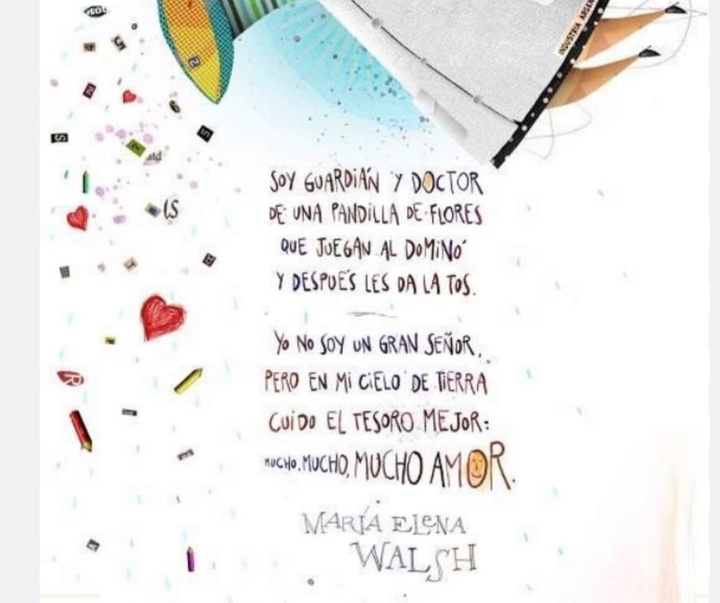 INDUSTRIA ARGEN
SOY GUARDIÁN Y DOCTOR
DE UNA PANDILLA DE FLORES
QUE JUEGAN AL DOMINÓ
Y DESPUÉS LES DA LA TOS.
YO NO SOY UN GRAN SEÑOR,
PERO EN MI CIELO DE TIERRA
CUIDO EL TESORO MEJOR:
MUCHO, MUCHO, MUCHO AMOR.
MARÍA ELENA
WALSH